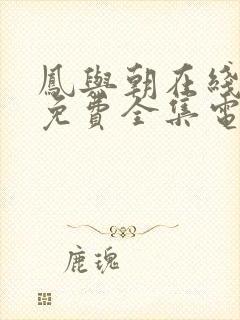 鳳與朝在綫
免費全集電
鹿瑰